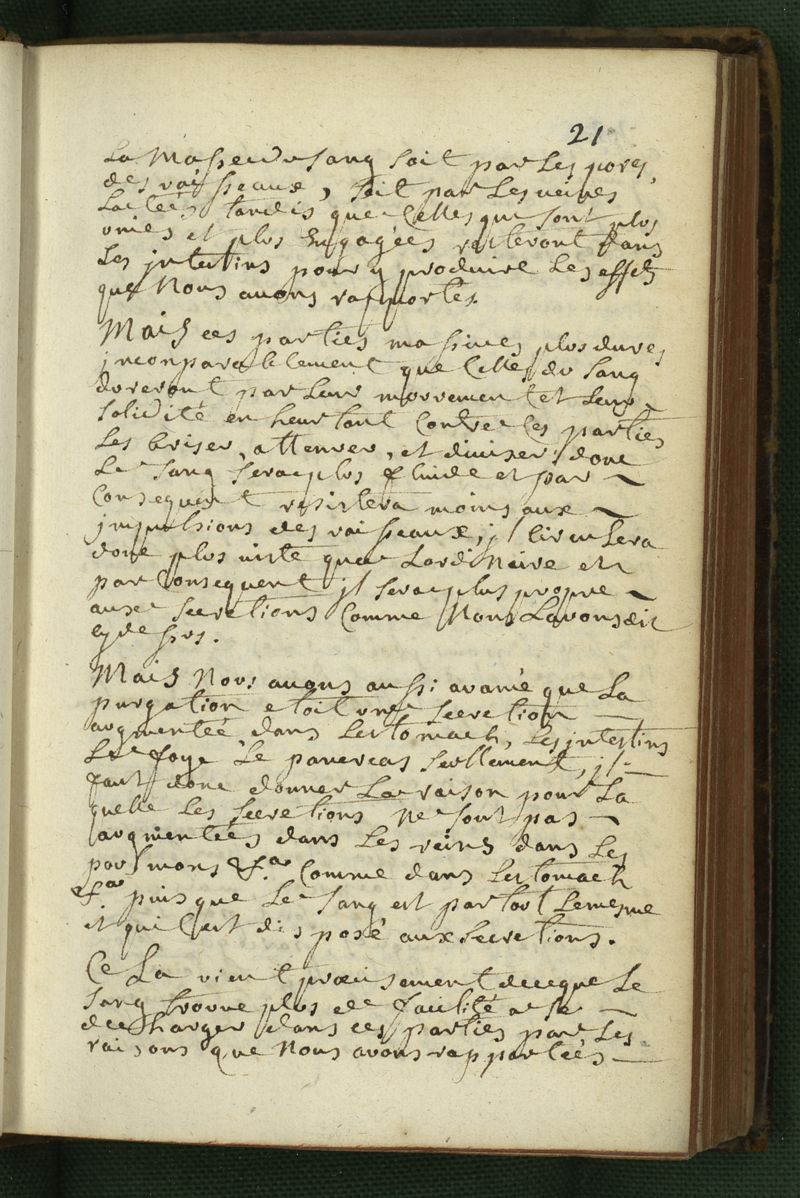 21
La Masse du sang soit par les pores
des vaisseaux, soit par les veines
Lactées tandis que celles qui sont plus
unies et plus engagées resteront dans
Les jntestins pour y produire les effets
que Nous avons rapportés.
Mais ces parties massives plus dures
jncomparablement que celles du sang
devront par leur mouvement et leur
solidité en heurtant contre les parties
Les briser, attenuer, et diviser donc
Le sang sera plus fluide et par
Consequent resistera moins aux
jmpulsions des vaisseaux, jl circulera
donc plus viste que Lordinaire et
par Consequent jl sera plus propre
aux secretions Comme Nous Lavons dit
cy dessus.
Mais Nous avons aussi avancé que La
purgation etoit une secretion
augmentée dans Lestomach, les jntestins
Le foye Le pancreas seullement, jl
faut donc donner La raison pour La
quelle les secretions Ne sont pas
augmentées dans Les reins dans Les
poulmons &.a Comme dans Lestomach
&.a puis que Le sang est partout Lemesme
et quil est disposé aux secretions.
Ce La vient precisement de ce que Le
sang trouve plus de facilité a se
decharger dans ces parties par Les
raisons que Nous avons rapportées